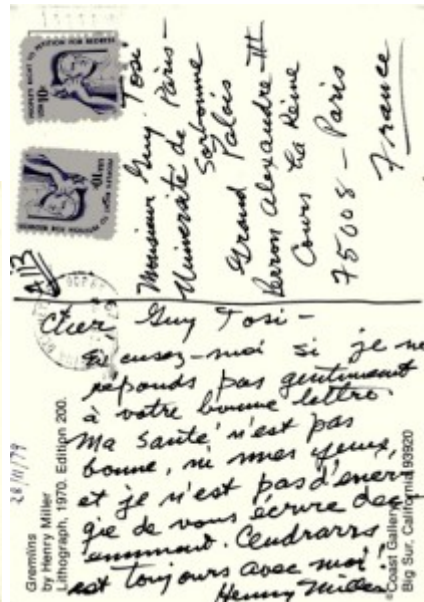 PEOPLE'S RIGHT TO PETITION FOR REDRESS
USA 10c
PEOPLE'S RIGHT TO PETITION FOR REDRESS
USA 10c
Monsieur Guy Tosi
Université de Paris-
Sorbonne
Grand Palais
Perron Alexandre-III
Cours La Reine
75008 - Paris
France
Cher Guy Tosi -
Excusez-moi si je ne
réponds pas gentiment
à votre bonne lettre.
Ma santé n'est pas
bonne, ni mes yeux,
et je n'est pas d'ener-
gie de vous écrire dec-
emment. Cendrars
est toujours avec moi!
Henry Miller
28/11/79
Gremlins
by Henry Miller
Lithograph, 1970. Edition 200.
©Coast Gallery
Big Sur, California 93920